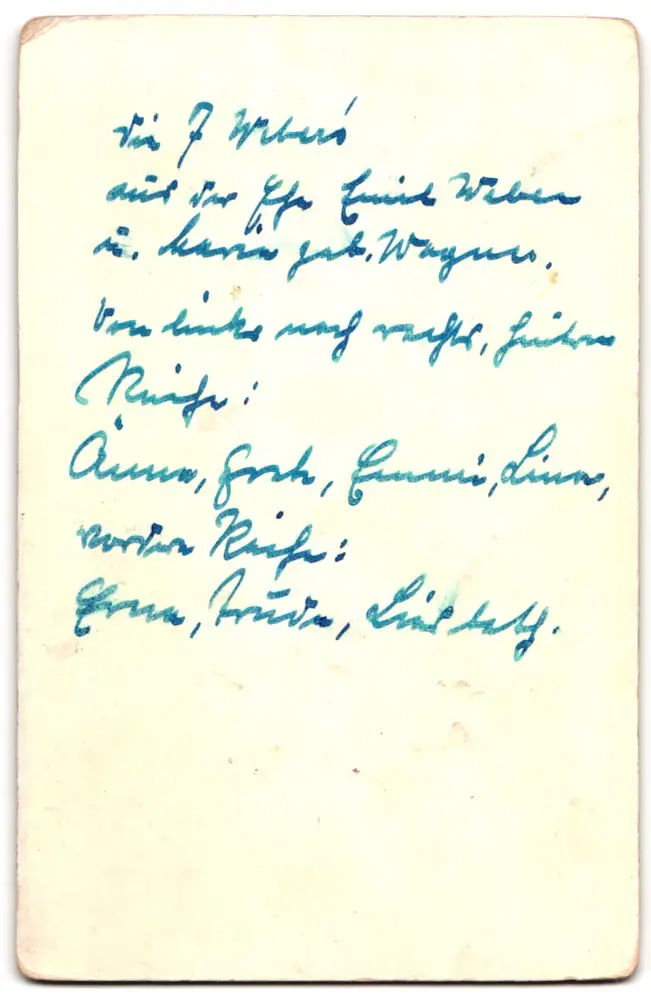 die 7 Weber's
aus der Ehe Emil Weber
u. Maria geb. Wagner.
Von links nach rechts, hintere
Reihe:
Anna, Grete, Emmi, Lina,
vordere Reihe:
Erna, Trude, Liesbeth.